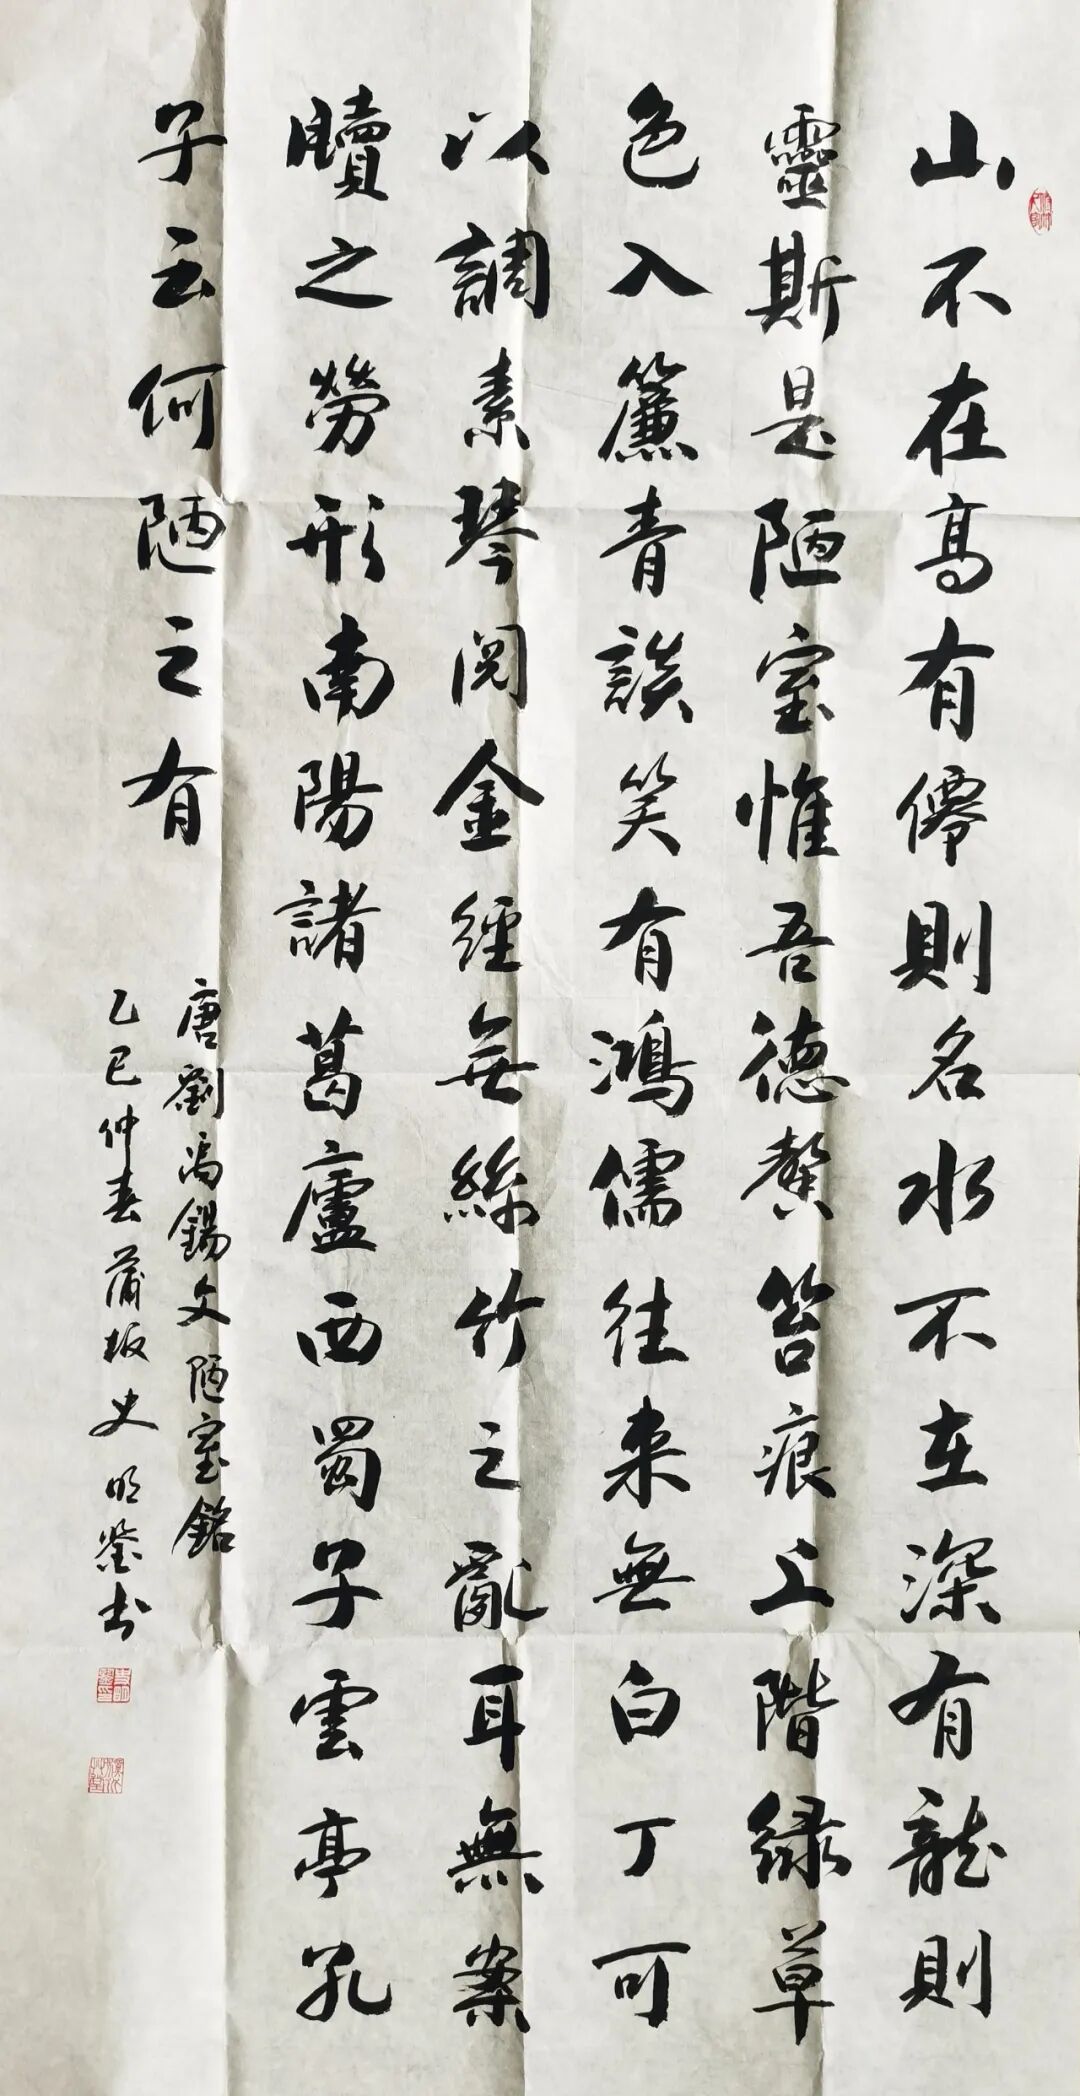 山不在高有僊則名水不在深有龍則
靈斯是陋室惟吾德馨苔痕上階緑草
色入簾青談笑有鴻儒往来無白丁可
以調素琴閲金經無絲竹之亂耳無案
牘之勞形南陽諸葛廬西蜀子雲亭孔
子云何陋之有
唐劉禹錫文陋室銘
乙巳仲春蒲坂史明鑒书